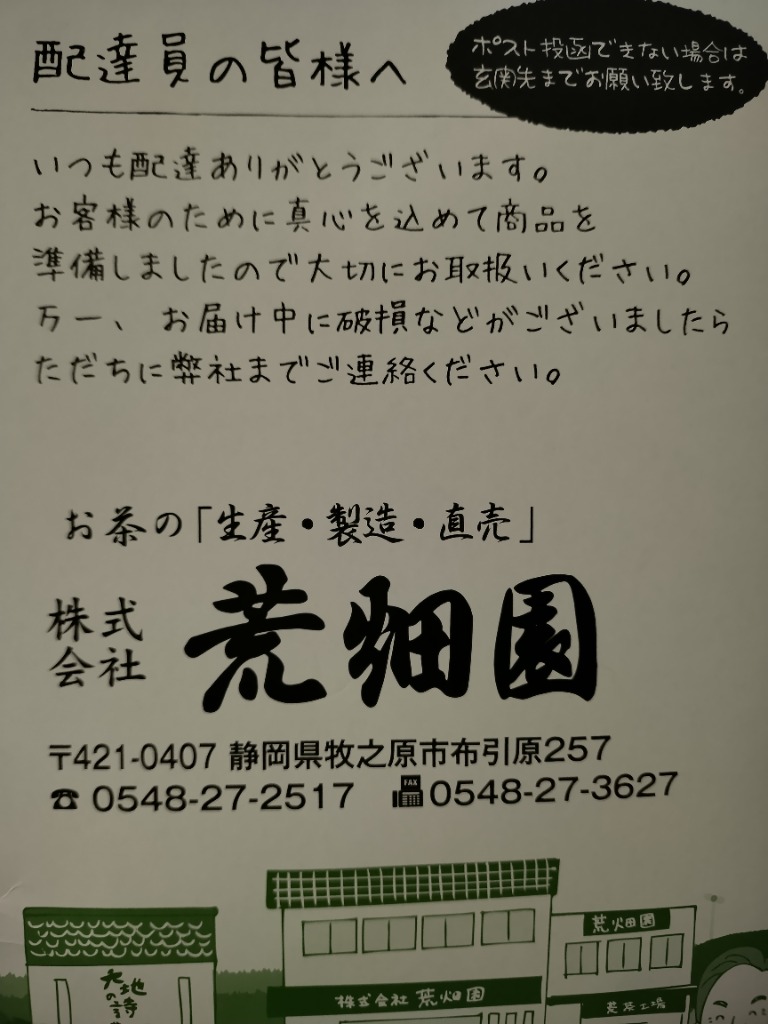 配達員の皆様へ
ポスト投函できない場合は
玄関先までお願い致します。
いつも配達ありがとうございます。
お客様のために真心を込めて商品を
準備しましたので大切にお取扱いください。
万一、お届け中に破損などがございましたら
ただちに弊社までご連絡ください。
お茶の「生産・製造・直売」
株式
会社
荒畑園
〒421-0407 静岡県牧之原市布引原257
☎ 0548-27-2517 FAX 0548-27-3627
荒畑園
株式会社 荒畑園
荒茶工場
大地
の詩